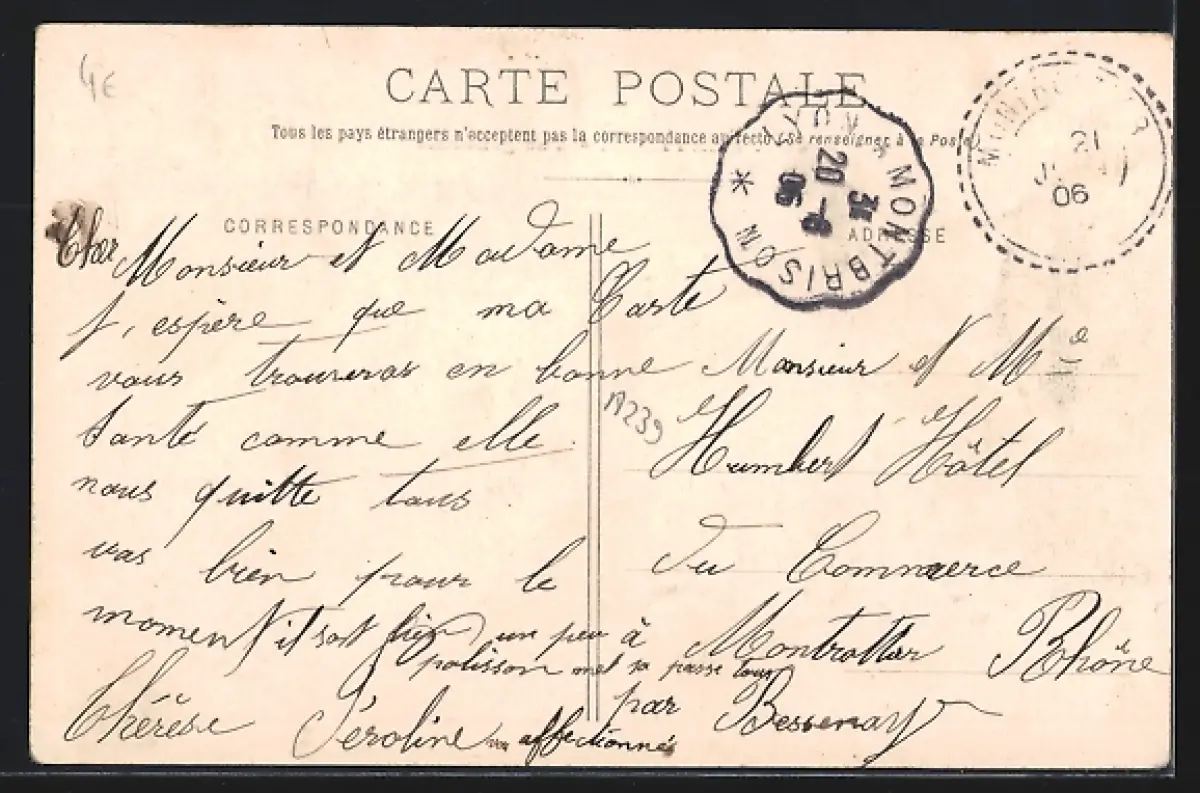 4€
CARTE POSTALE
Tous les pays étrangers n'acceptent pas la correspondance au recto (Se renseigner à la Poste)
LYON * MONTBRISON *
3E
20 -6
06
21
06
CORRESPONDANCE
ADRESSE
Cher Monsieur et Madame
J, espère que ma Carte
vous trouveras en bonne
Santé comme elle
nous quitte tous
vas bien pour le
moment il sont bien un peu à
polisson mel sa passe tous
Thérèse Péroline affectionnés
19239
Monsieur et Me
Humbert Hôtel
du Commerce
Montrottier Rhône
par Bessenay